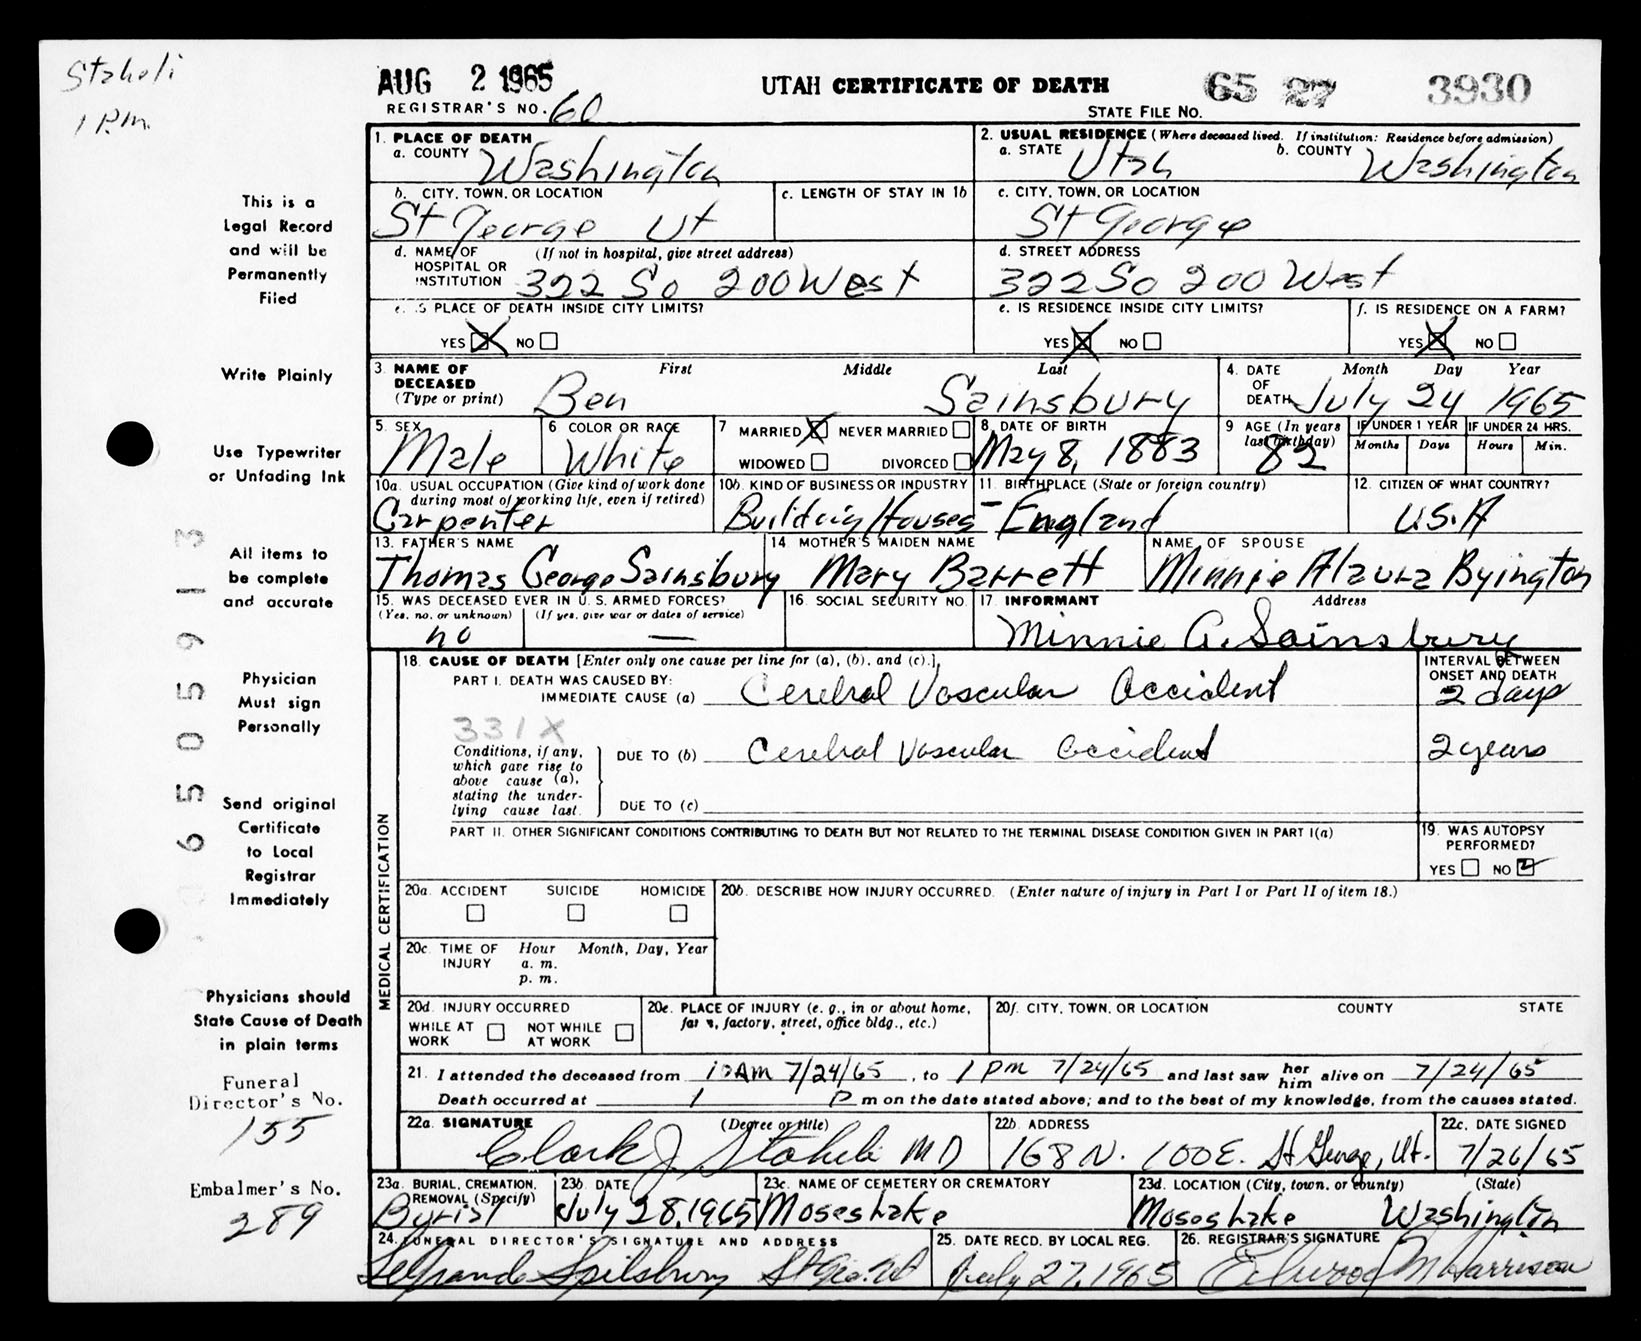 Staheli
1 P.M.
AUG 2 1965
REGISTRAR'S NO. 60
UTAH CERTIFICATE OF DEATH
65 27 3930
STATE FILE NO.
This is a
Legal Record
and will be
Permanently
Filed
Write Plainly
Use Typewriter
or Unfading Ink
All items to
be complete
and accurate
Physician
Must sign
Personally
Send original
Certificate
to Local
Registrar
Immediately
Physicians should
State Cause of Death
in plain terms
Funeral
Director's No.
155
Embalmer's No.
289
06505913
1. PLACE OF DEATH
a. COUNTY Washington
2. USUAL RESIDENCE (Where deceased lived. If institution: Residence before admission)
a. STATE Utah b. COUNTY Washington
b. CITY, TOWN, OR LOCATION
St George Ut
c. LENGTH OF STAY IN 1b
c. CITY, TOWN, OR LOCATION
St George
d. NAME OF HOSPITAL OR INSTITUTION (If not in hospital, give street address)
322 So 200 West
d. STREET ADDRESS
322 So 200 West
e. IS PLACE OF DEATH INSIDE CITY LIMITS?
YES X NO
e. IS RESIDENCE INSIDE CITY LIMITS?
YES X NO
f. IS RESIDENCE ON A FARM?
YES X NO
3. NAME OF DECEASED (Type or print)
First Middle Last
Ben Sainsbury
4. DATE OF DEATH
Month Day Year
July 24 1965
5. SEX
Male
6 COLOR OR RACE
White
7 MARRIED X NEVER MARRIED
WIDOWED DIVORCED
8. DATE OF BIRTH
May 8, 1883
9 AGE (In years last birthday)
82
IF UNDER 1 YEAR
Months Days
IF UNDER 24 HRS.
Hours Min.
10a. USUAL OCCUPATION (Give kind of work done during most of working life, even if retired)
Carpenter
10b. KIND OF BUSINESS OR INDUSTRY
Building Houses
11. BIRTHPLACE (State or foreign country)
England
12. CITIZEN OF WHAT COUNTRY?
U.S.A
13. FATHER'S NAME
Thomas George Sainsbury
14 MOTHER'S MAIDEN NAME
Mary Barrett
NAME OF SPOUSE
Minnie Alzura Byington
15. WAS DECEASED EVER IN U.S. ARMED FORCES?
(Yes, no, or unknown) (If yes, give war or dates of service)
no —
16. SOCIAL SECURITY NO.
17. INFORMANT Address
Minnie A. Sainsbury
MEDICAL CERTIFICATION
18. CAUSE OF DEATH [Enter only one cause per line for (a), (b), and (c).]
INTERVAL BETWEEN ONSET AND DEATH
PART I. DEATH WAS CAUSED BY:
IMMEDIATE CAUSE (a) Cerebral Vascular Accident 2 days
331X
Conditions, if any, which gave rise to above cause (a), stating the underlying cause last.
DUE TO (b) Cerebral Vascular Accident 2 years
DUE TO (c)
PART II. OTHER SIGNIFICANT CONDITIONS CONTRIBUTING TO DEATH BUT NOT RELATED TO THE TERMINAL DISEASE CONDITION GIVEN IN PART I(a)
19. WAS AUTOPSY PERFORMED?
YES NO
20a. ACCIDENT SUICIDE HOMICIDE
20b. DESCRIBE HOW INJURY OCCURRED. (Enter nature of injury in Part I or Part II of item 18.)
20c TIME OF INJURY
Hour Month, Day, Year
a. m.
p. m.
20d. INJURY OCCURRED
WHILE AT WORK NOT WHILE AT WORK
20e. PLACE OF INJURY (e. g., in or about home, farm, factory, street, office bldg., etc.)
20f. CITY, TOWN, OR LOCATION COUNTY STATE
21. I attended the deceased from 10 AM 7/24/65, to 1 PM 7/24/65 and last saw her him alive on 7/24/65
Death occurred at 1 P m on the date stated above; and to the best of my knowledge, from the causes stated.
22a. SIGNATURE (Degree or title)
Clark J Staheli MD
22b. ADDRESS
168 N. 100 E. St George, Ut.
22c. DATE SIGNED
7/26/65
23a. BURIAL, CREMATION, REMOVAL (Specify)
Burial
23b. DATE
July 28, 1965
23c. NAME OF CEMETERY OR CREMATORY
Moses Lake
23d. LOCATION (City, town, or county) (State)
Moses Lake Washington
24. FUNERAL DIRECTOR'S SIGNATURE AND ADDRESS
Spilsbury
25. DATE RECD. BY LOCAL REG.
July 27, 1965
26. REGISTRAR'S SIGNATURE
Elwood M Harrison